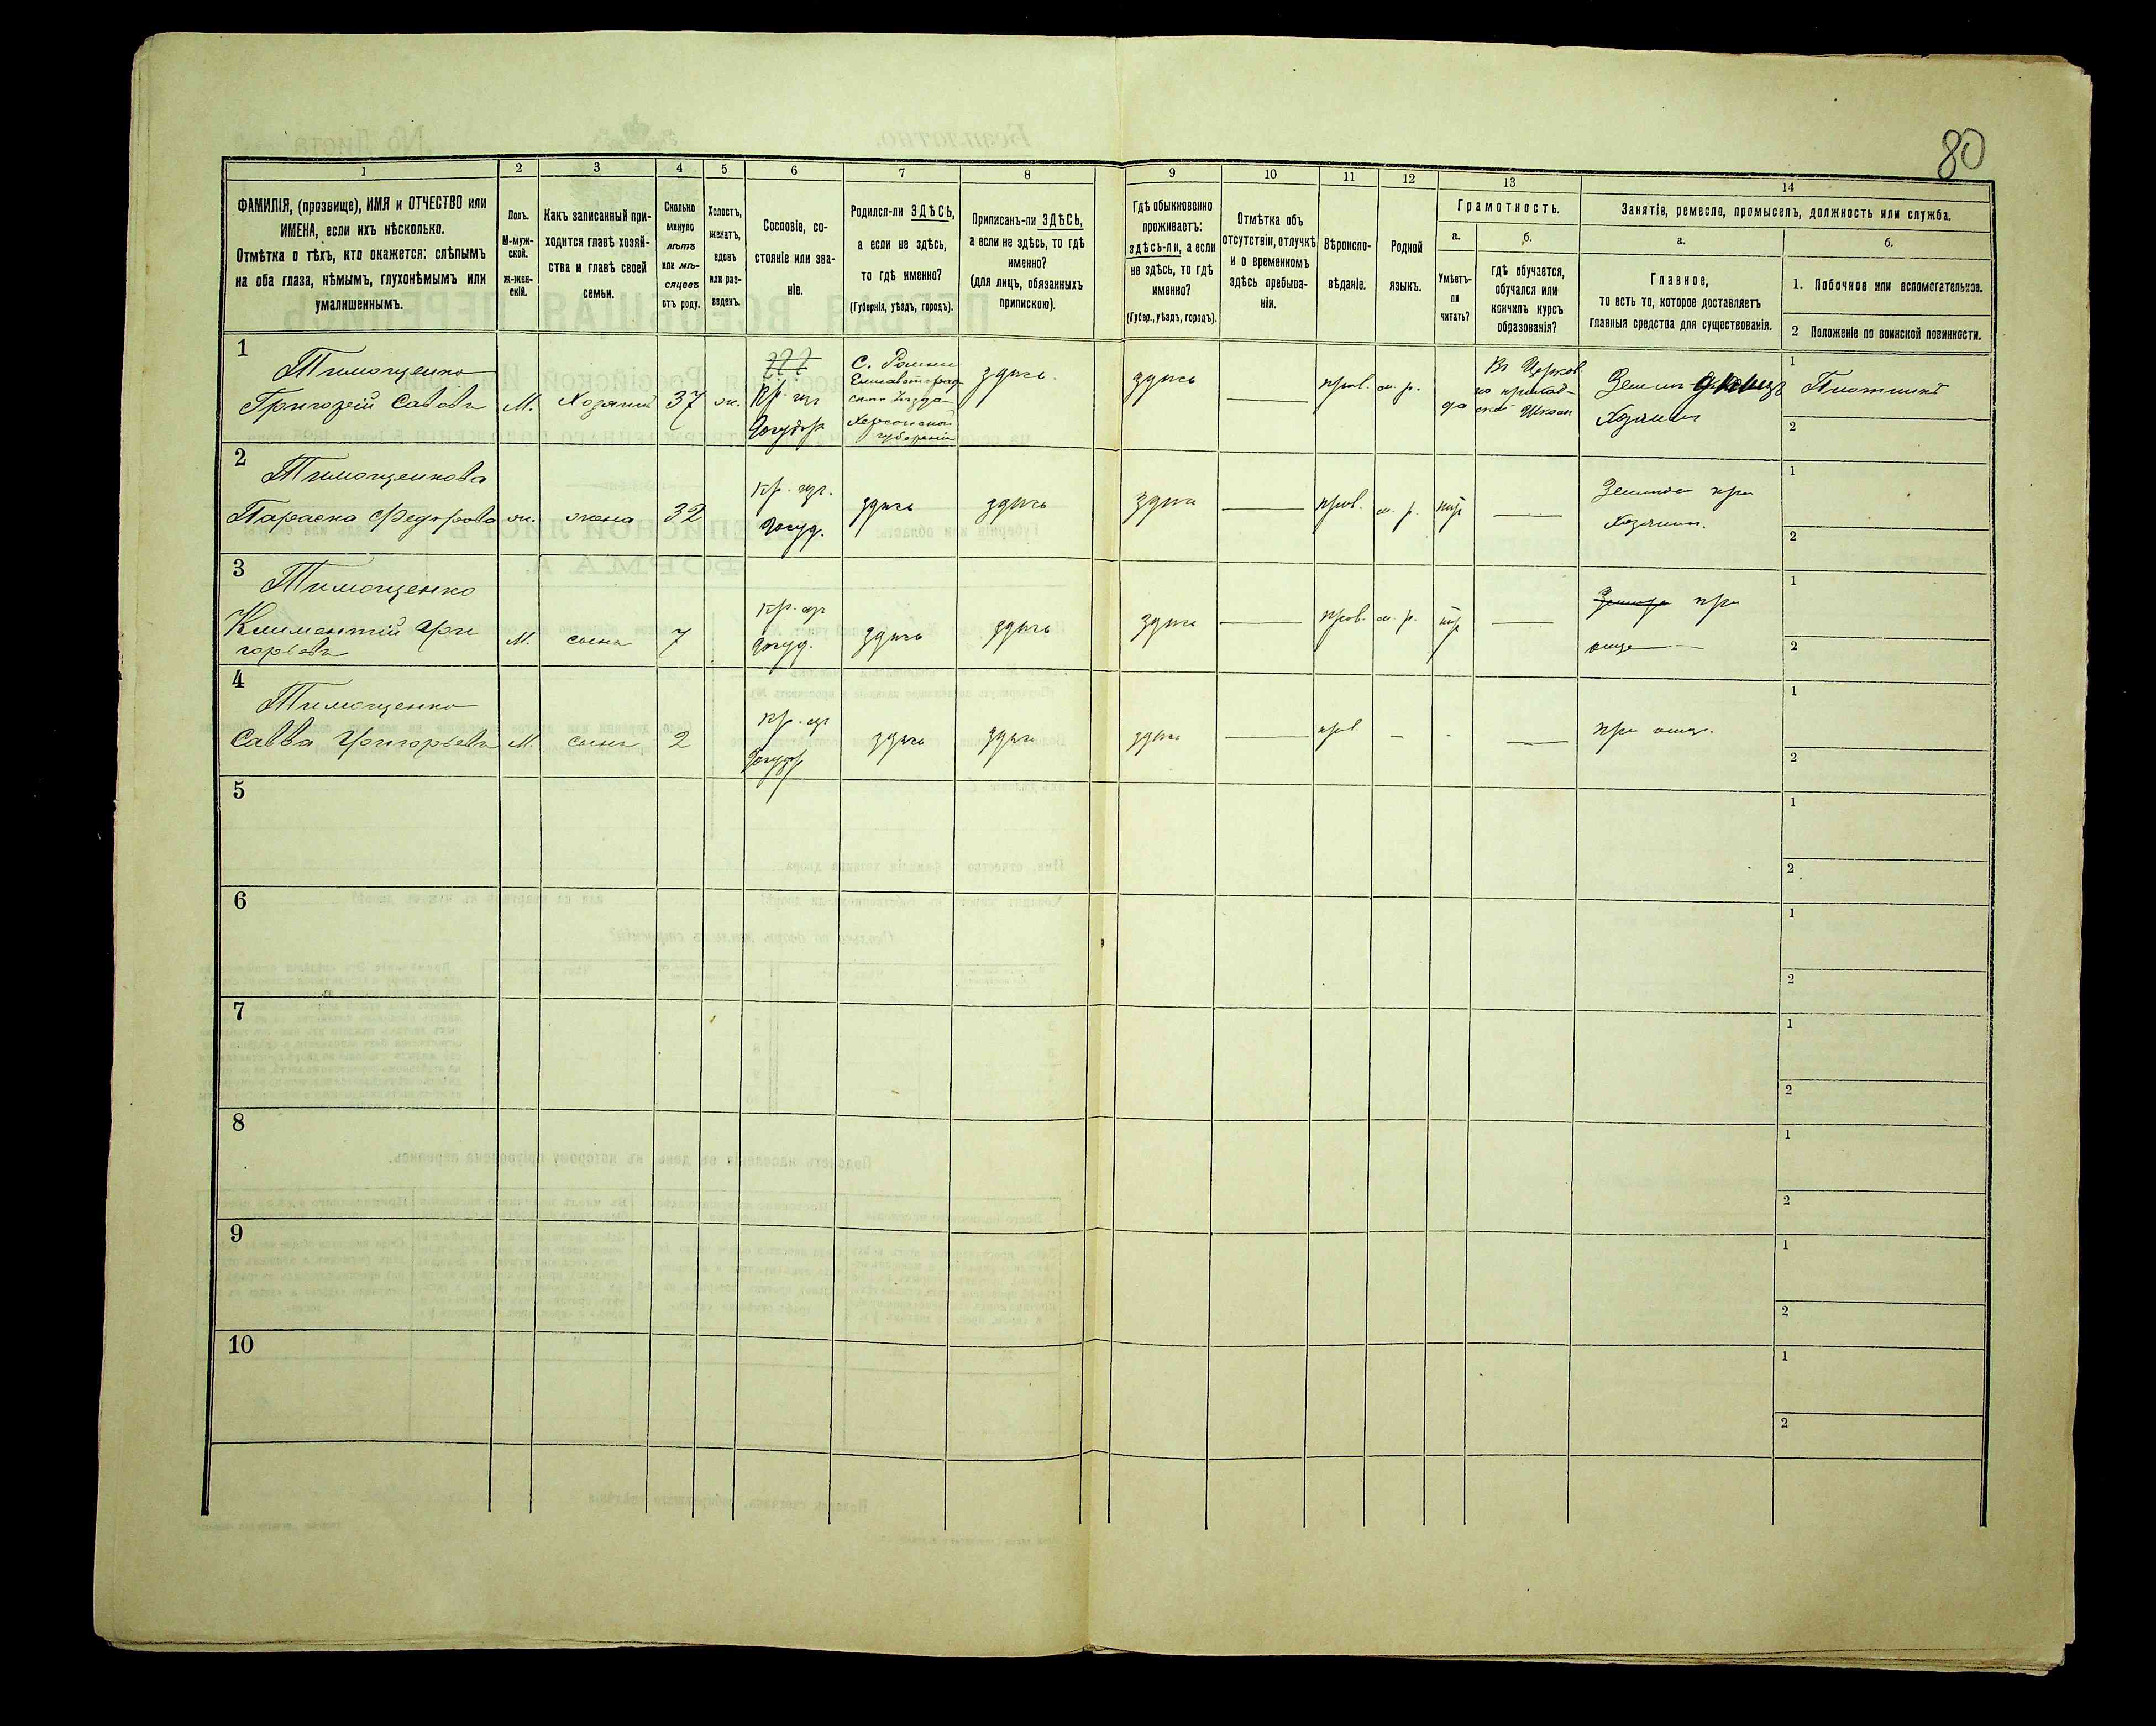 80
1 2 3 4 5 6 7 8 9 10 11 12 13 14
ФАМИЛІЯ, (прозвище), ИМЯ и ОТЧЕСТВО или
ИМЕНА, если ихъ нѣсколько.
Отмѣтка о тѣхъ, кто окажется: слѣпымъ
на оба глаза, нѣмымъ, глухонѣмымъ или
умалишеннымъ.
Полъ.
М-муж-
ской.
Ж-жен-
скій.
Какъ записанный при-
ходится главѣ хозяй-
ства и главѣ своей
семьи.
Сколько
минуло
лѣтъ
или мѣ-
сяцевъ
отъ роду.
Холостъ,
женатъ,
вдовъ
или раз-
веденъ.
Сословіе, со-
стояніе или зва-
ніе.
Родился-ли ЗДѢСЬ,
а если не здѣсь,
то гдѣ именно?
(Губернія, уѣздъ, городъ).
Приписанъ-ли ЗДѢСЬ,
а если не здѣсь, то гдѣ
именно?
(для лицъ, обязанныхъ
припискою).
Гдѣ обыкновенно
проживаетъ:
здѣсь-ли, а если
не здѣсь, то гдѣ
именно?
(Губер., уѣздъ, городъ).
Отмѣтка объ
отсутствіи, отлучкѣ
и о временномъ
здѣсь пребыва-
ніи.
Вѣроиспо-
вѣданіе.
Родной
языкъ.
Грамотность.
а.
Умѣетъ-
ли
читать?
б.
гдѣ обучается,
обучался или
кончилъ курсъ
образованія?
Занятіе, ремесло, промыселъ, должность или служба.
а.
Главное,
то есть то, которое доставляетъ
главныя средства для существованія.
б.
1. Побочное или вспомогательное.
2 Положеніе по воинской повинности.
1
Тимощенко
Григорій Савовъ
М.
Хозяинъ
37
ж.
Кр. из
Госуд.
С. Ровное
Елисаветград-
скаго уѣзда
Херсонской
губерніи
здѣсь
здѣсь
прав.
м. р.
да
Въ Церков
но приход-
ской Школѣ
Хозяинъ
1
Плотникъ
2
2
Тимощенкова
Параска Федорова
ж.
жена
32
кр. из.
Госуд.
здѣсь
здѣсь
здѣсь
прав.
м. р.
нѣт
при
Хозяинѣ.
1
2
3
Тимощенко
Климентій Гри
горьевъ
М.
сынъ
7
кр. из
Госуд.
здѣсь
здѣсь
здѣсь
прав.
м. р.
нѣт
при
отце
1
2
4
Тимощенко
Савва Григорьевъ
М.
сынъ
2
кр. из
Госуд
здѣсь
здѣсь
здѣсь
прав.
при отце.
1
2
5
1
2
6
1
2
7
1
2
8
1
2
9
1
2
10
1
2